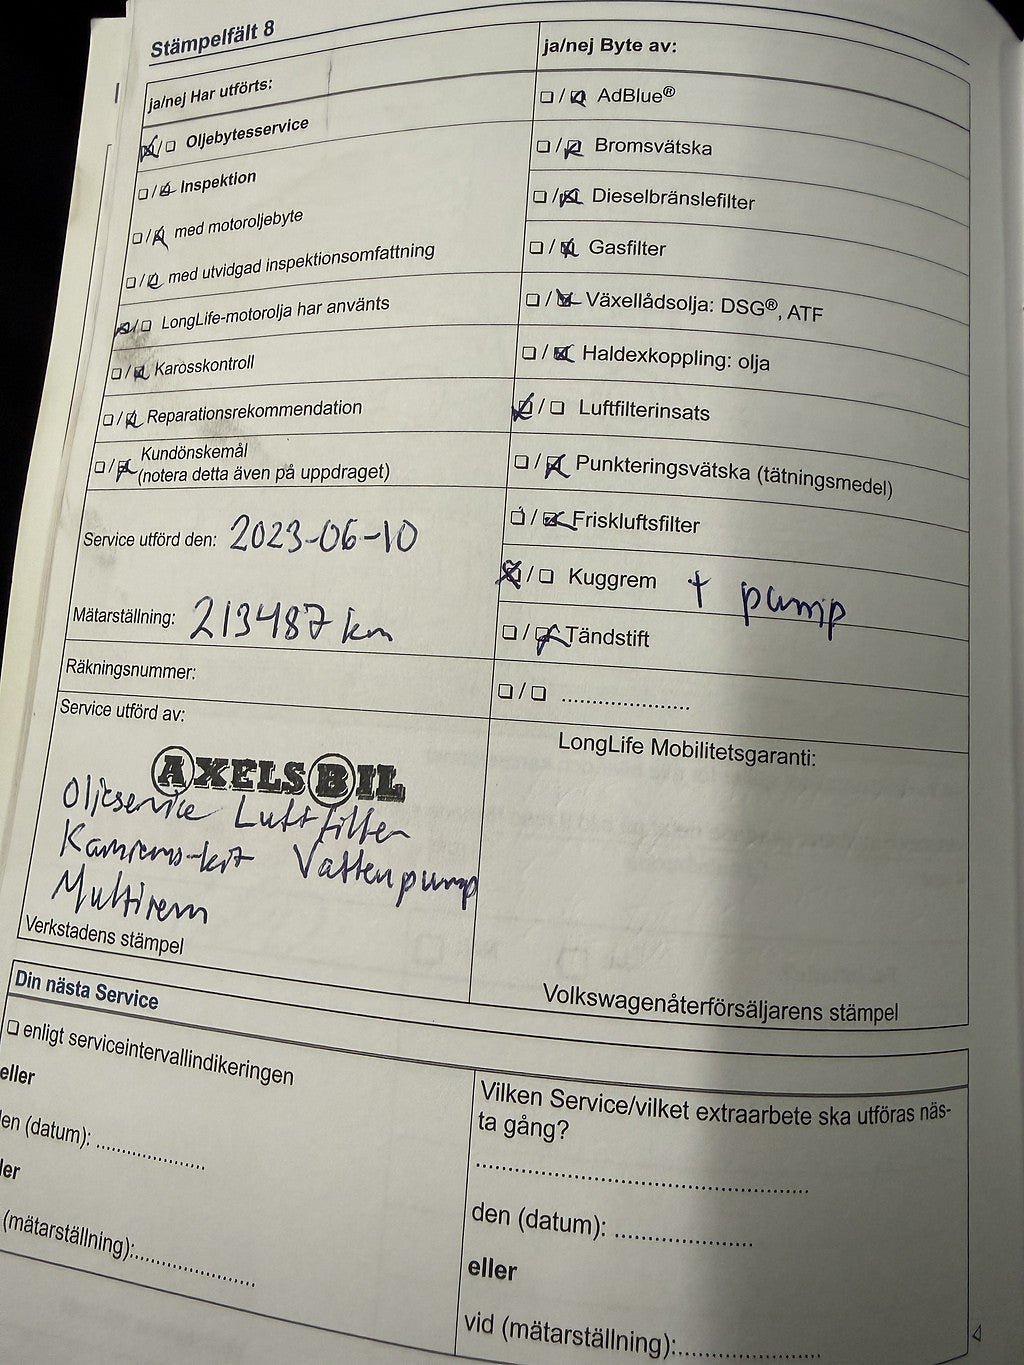 Stämpelfält 8
ja/nej Har utförts:
☒/☐ Oljebytesservice
☐/☒ Inspektion
☐/☒ med motoroljebyte
☐/☒ med utvidgad inspektionsomfattning
☒/☐ LongLife-motorolja har använts
☐/☒ Karosskontroll
☐/☒ Reparationsrekommendation
☐/☒ Kundönskemål
(notera detta även på uppdraget)
Service utförd den: 2023-06-10
Mätarställning: 213487 km
Räkningsnummer:
Service utförd av:
AXELS BIL
Oljeservice Luftfilter
Kamrems-kit Vattenpump
Multirem
Verkstadens stämpel
ja/nej Byte av:
☐/☒ AdBlue®
☐/☒ Bromsvätska
☐/☒ Dieselbränslefilter
☐/☒ Gasfilter
☐/☒ Växellådsolja: DSG®, ATF
☐/☒ Haldexkoppling: olja
☒/☐ Luftfilterinsats
☐/☒ Punkteringsvätska (tätningsmedel)
☐/☒ Friskluftsfilter
☒/☐ Kuggrem + pump
☐/☒ Tändstift
☐/☐ ......................
LongLife Mobilitetsgaranti:
Volkswagenåterförsäljarens stämpel
Din nästa Service
☐ enligt serviceintervallindikeringen
eller
en (datum): ....................
ler
(mätarställning):......................
Vilken Service/vilket extraarbete ska utföras näs-
ta gång?
......................................................
den (datum): .......................
eller
vid (mätarställning):.......................